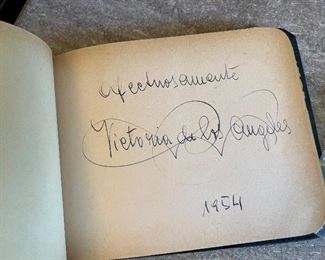 Afectuosamente
Victoria de los Angeles
1954